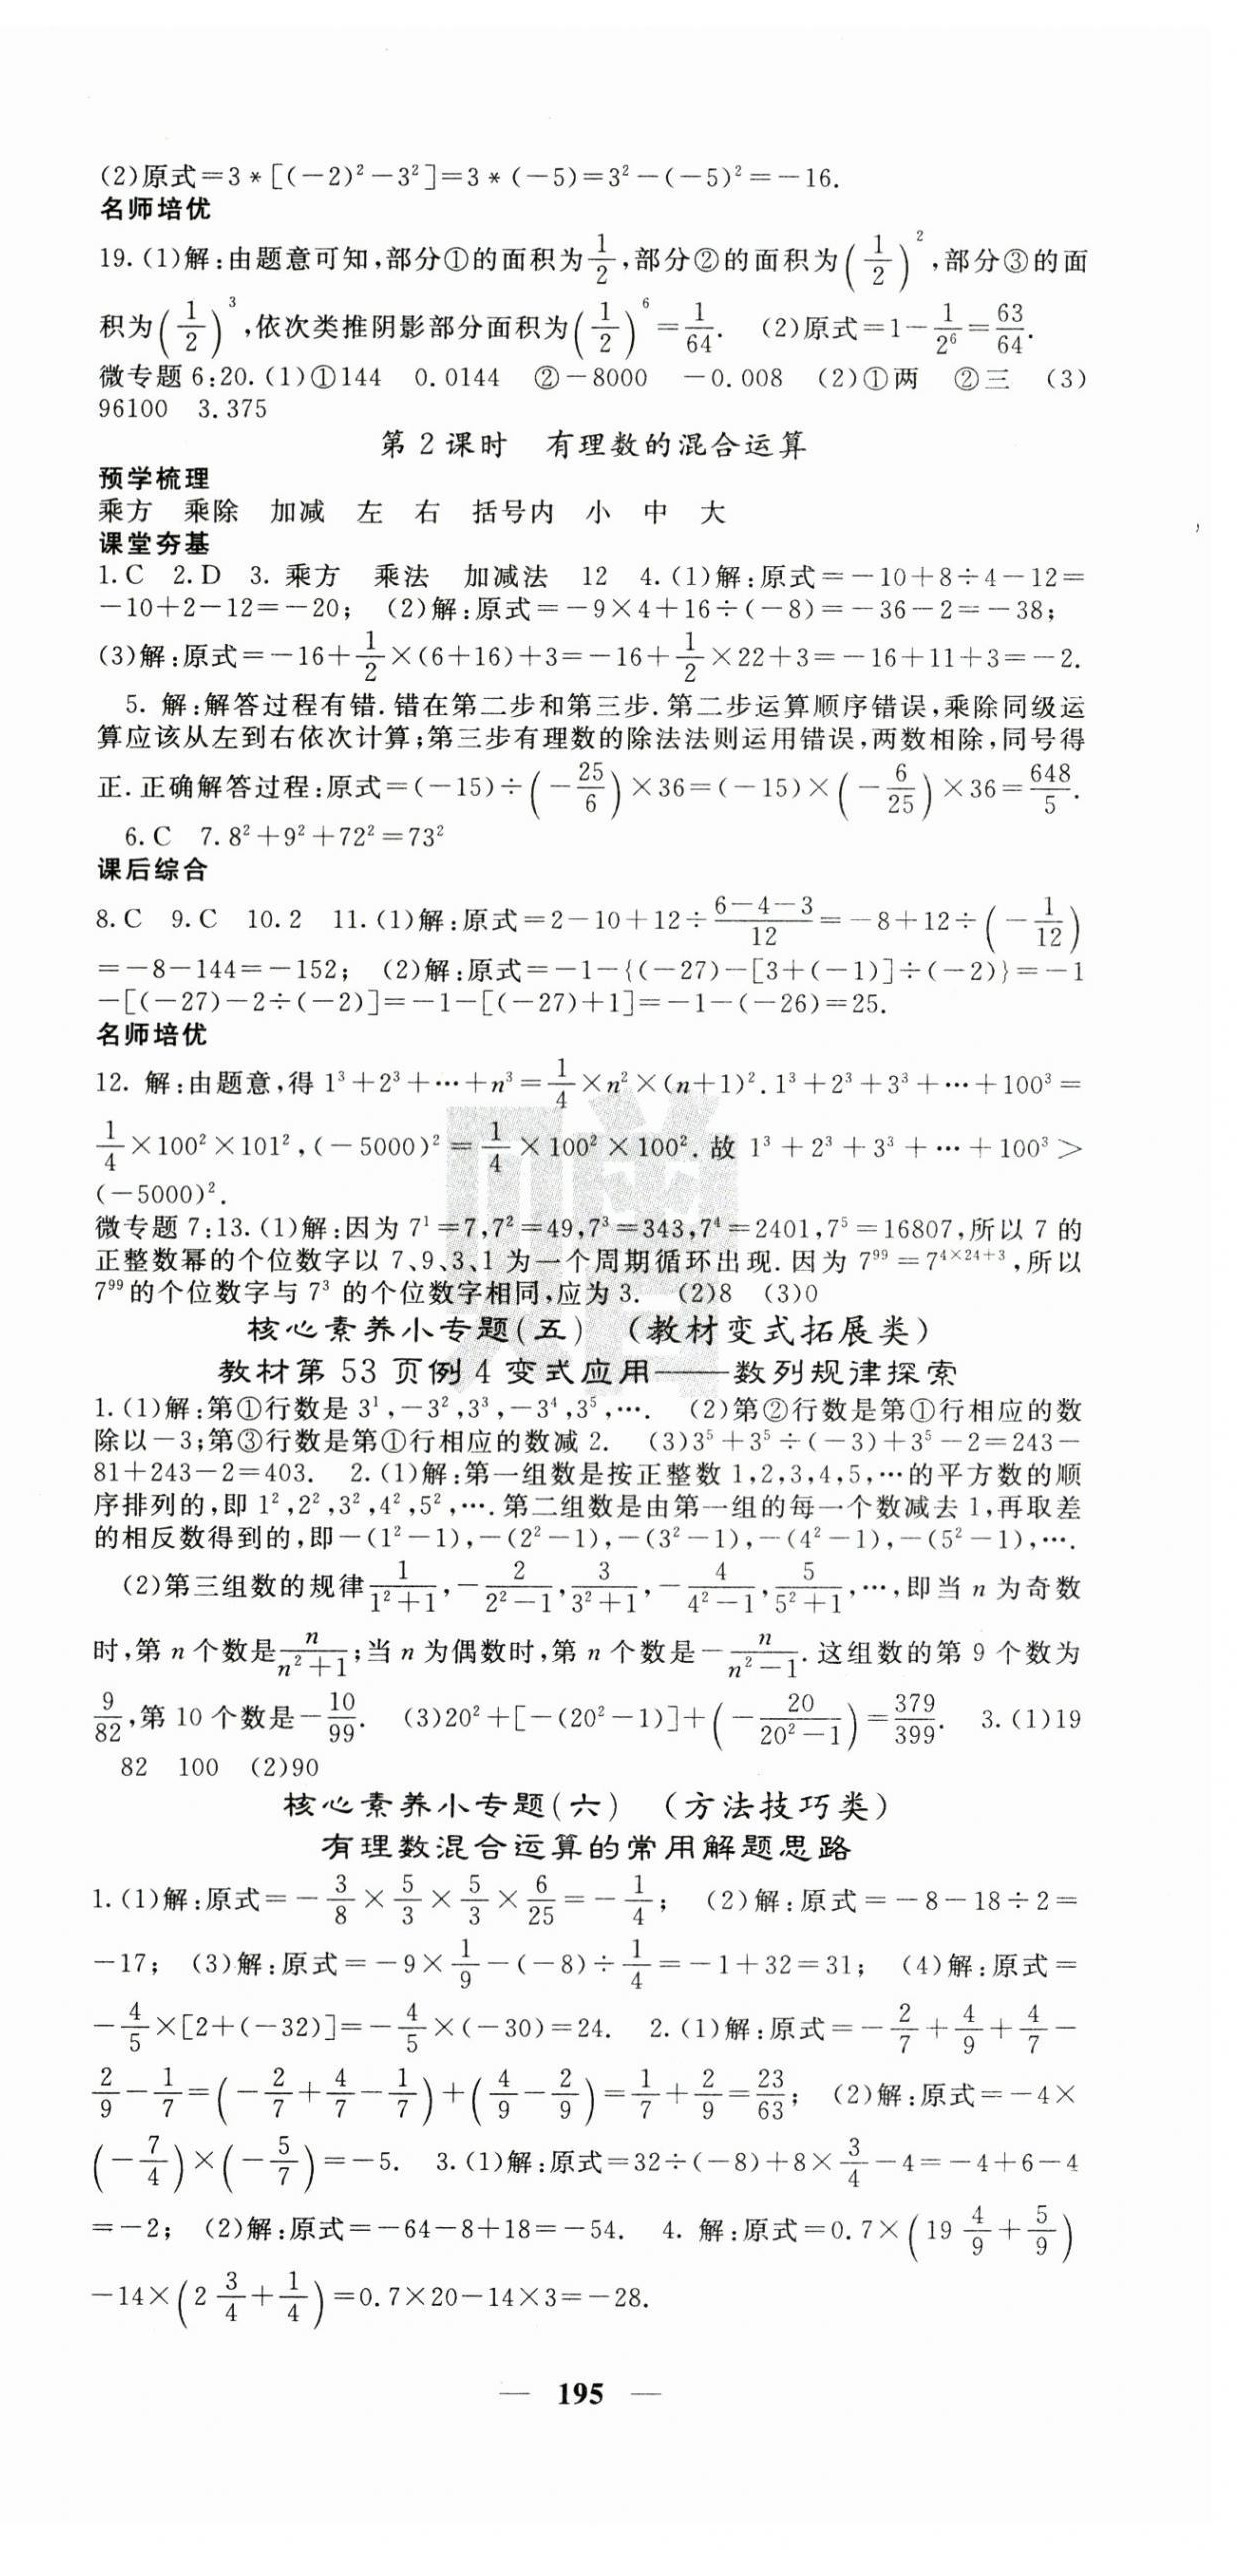 (2)原式=3*[(-2)²-3²]=3*(-5)=3²-(-5)²=-16.
名师培优
19.(1)解:由题意可知,部分①的面积为1/2,部分②的面积为(1/2)²,部分③的面
积为(1/2)³,依次类推阴影部分面积为(1/2)⁶=1/64. (2)原式=1-1/2⁶=63/64.
微专题6:20.(1)①144 0.0144 ②-8000 -0.008 (2)①两 ②三 (3)
96100 3.375
第2课时 有理数的混合运算
预学梳理
乘方 乘除 加减 左 右 括号内 小 中 大
课堂夯基
1.C 2.D 3.乘方 乘法 加减法 12 4.(1)解:原式=-10+8÷4-12=
-10+2-12=-20; (2)解:原式=-9×4+16÷(-8)=-36-2=-38;
(3)解:原式=-16+1/2×(6+16)+3=-16+1/2×22+3=-16+11+3=-2.
5. 解:解答过程有错.错在第二步和第三步.第二步运算顺序错误,乘除同级运
算应该从左到右依次计算;第三步有理数的除法法则运用错误,两数相除,同号得
正.正确解答过程:原式=(-15)÷(-25/6)×36=(-15)×(-6/25)×36=648/5.
6.C 7.8²+9²+72²=73²
课后综合
8.C 9.C 10.2 11.(1)解:原式=2-10+12÷(6-4-3)/12=-8+12÷(-1/12)
=-8-144=-152; (2)解:原式=-1-{(-27)-[3+(-1)]÷(-2)}=-1
-[(-27)-2÷(-2)]=-1-[(-27)+1]=-1-(-26)=25.
名师培优
12. 解:由题意,得1³+2³+…+n³=1/4×n²×(n+1)².1³+2³+3³+…+100³=
1/4×100²×101²,(-5000)²=1/4×100²×100².故1³+2³+3³+…+100³>
(-5000)².
微专题7:13.(1)解:因为7¹=7,7²=49,7³=343,7⁴=2401,7⁵=16807,所以7的
正整数幂的个位数字以7、9、3、1为一个周期循环出现.因为7⁹⁹=7⁴ˣ²⁴⁺³,所以
7⁹⁹的个位数字与7³的个位数字相同,应为3. (2)8 (3)0
核心素养小专题(五) (教材变式拓展类)
教材第53页例4变式应用——数列规律探索
1.(1)解:第①行数是3¹,-3²,3³,-3⁴,3⁵,…. (2)第②行数是第①行相应的数
除以-3;第③行数是第①行相应的数减2. (3)3⁵+3⁵÷(-3)+3⁵-2=243-
81+243-2=403. 2.(1)解:第一组数是按正整数1,2,3,4,5,…的平方数的顺
序排列的,即1²,2²,3²,4²,5²,….第二组数是由第一组的每一个数减去1,再取差
的相反数得到的,即-(1²-1),-(2²-1),-(3²-1),-(4²-1),-(5²-1),….
(2)第三组数的规律1/(1²+1),-2/(2²-1),3/(3²+1),-4/(4²-1),5/(5²+1),…,即当n为奇数
时,第n个数是n/(n²+1);当n为偶数时,第n个数是-n/(n²-1).这组数的第9个数为
9/82,第10个数是-10/99. (3)20²+[-(20²-1)]+(-20/(20²-1))=379/399. 3.(1)19
82 100 (2)90
核心素养小专题(六) (方法技巧类)
有理数混合运算的常用解题思路
1.(1)解:原式=-3/8×5/3×5/3×6/25=-1/4; (2)解:原式=-8-18÷2=
-17; (3)解:原式=-9×1/9-(-8)÷1/4=-1+32=31; (4)解:原式=
-4/5×[2+(-32)]=-4/5×(-30)=24. 2.(1)解:原式=-2/7+4/9+4/7-
2/9-1/7=(-2/7+4/7-1/7)+(4/9-2/9)=1/7+2/9=23/63; (2)解:原式=-4×
(-7/4)×(-5/7)=-5. 3.(1)解:原式=32÷(-8)+8×3/4-4=-4+6-4
=-2; (2)解:原式=-64-8+18=-54. 4. 解:原式=0.7×(19 4/9+5/9)
-14×(2 3/4+1/4)=0.7×20-14×3=-28.
— 195 —